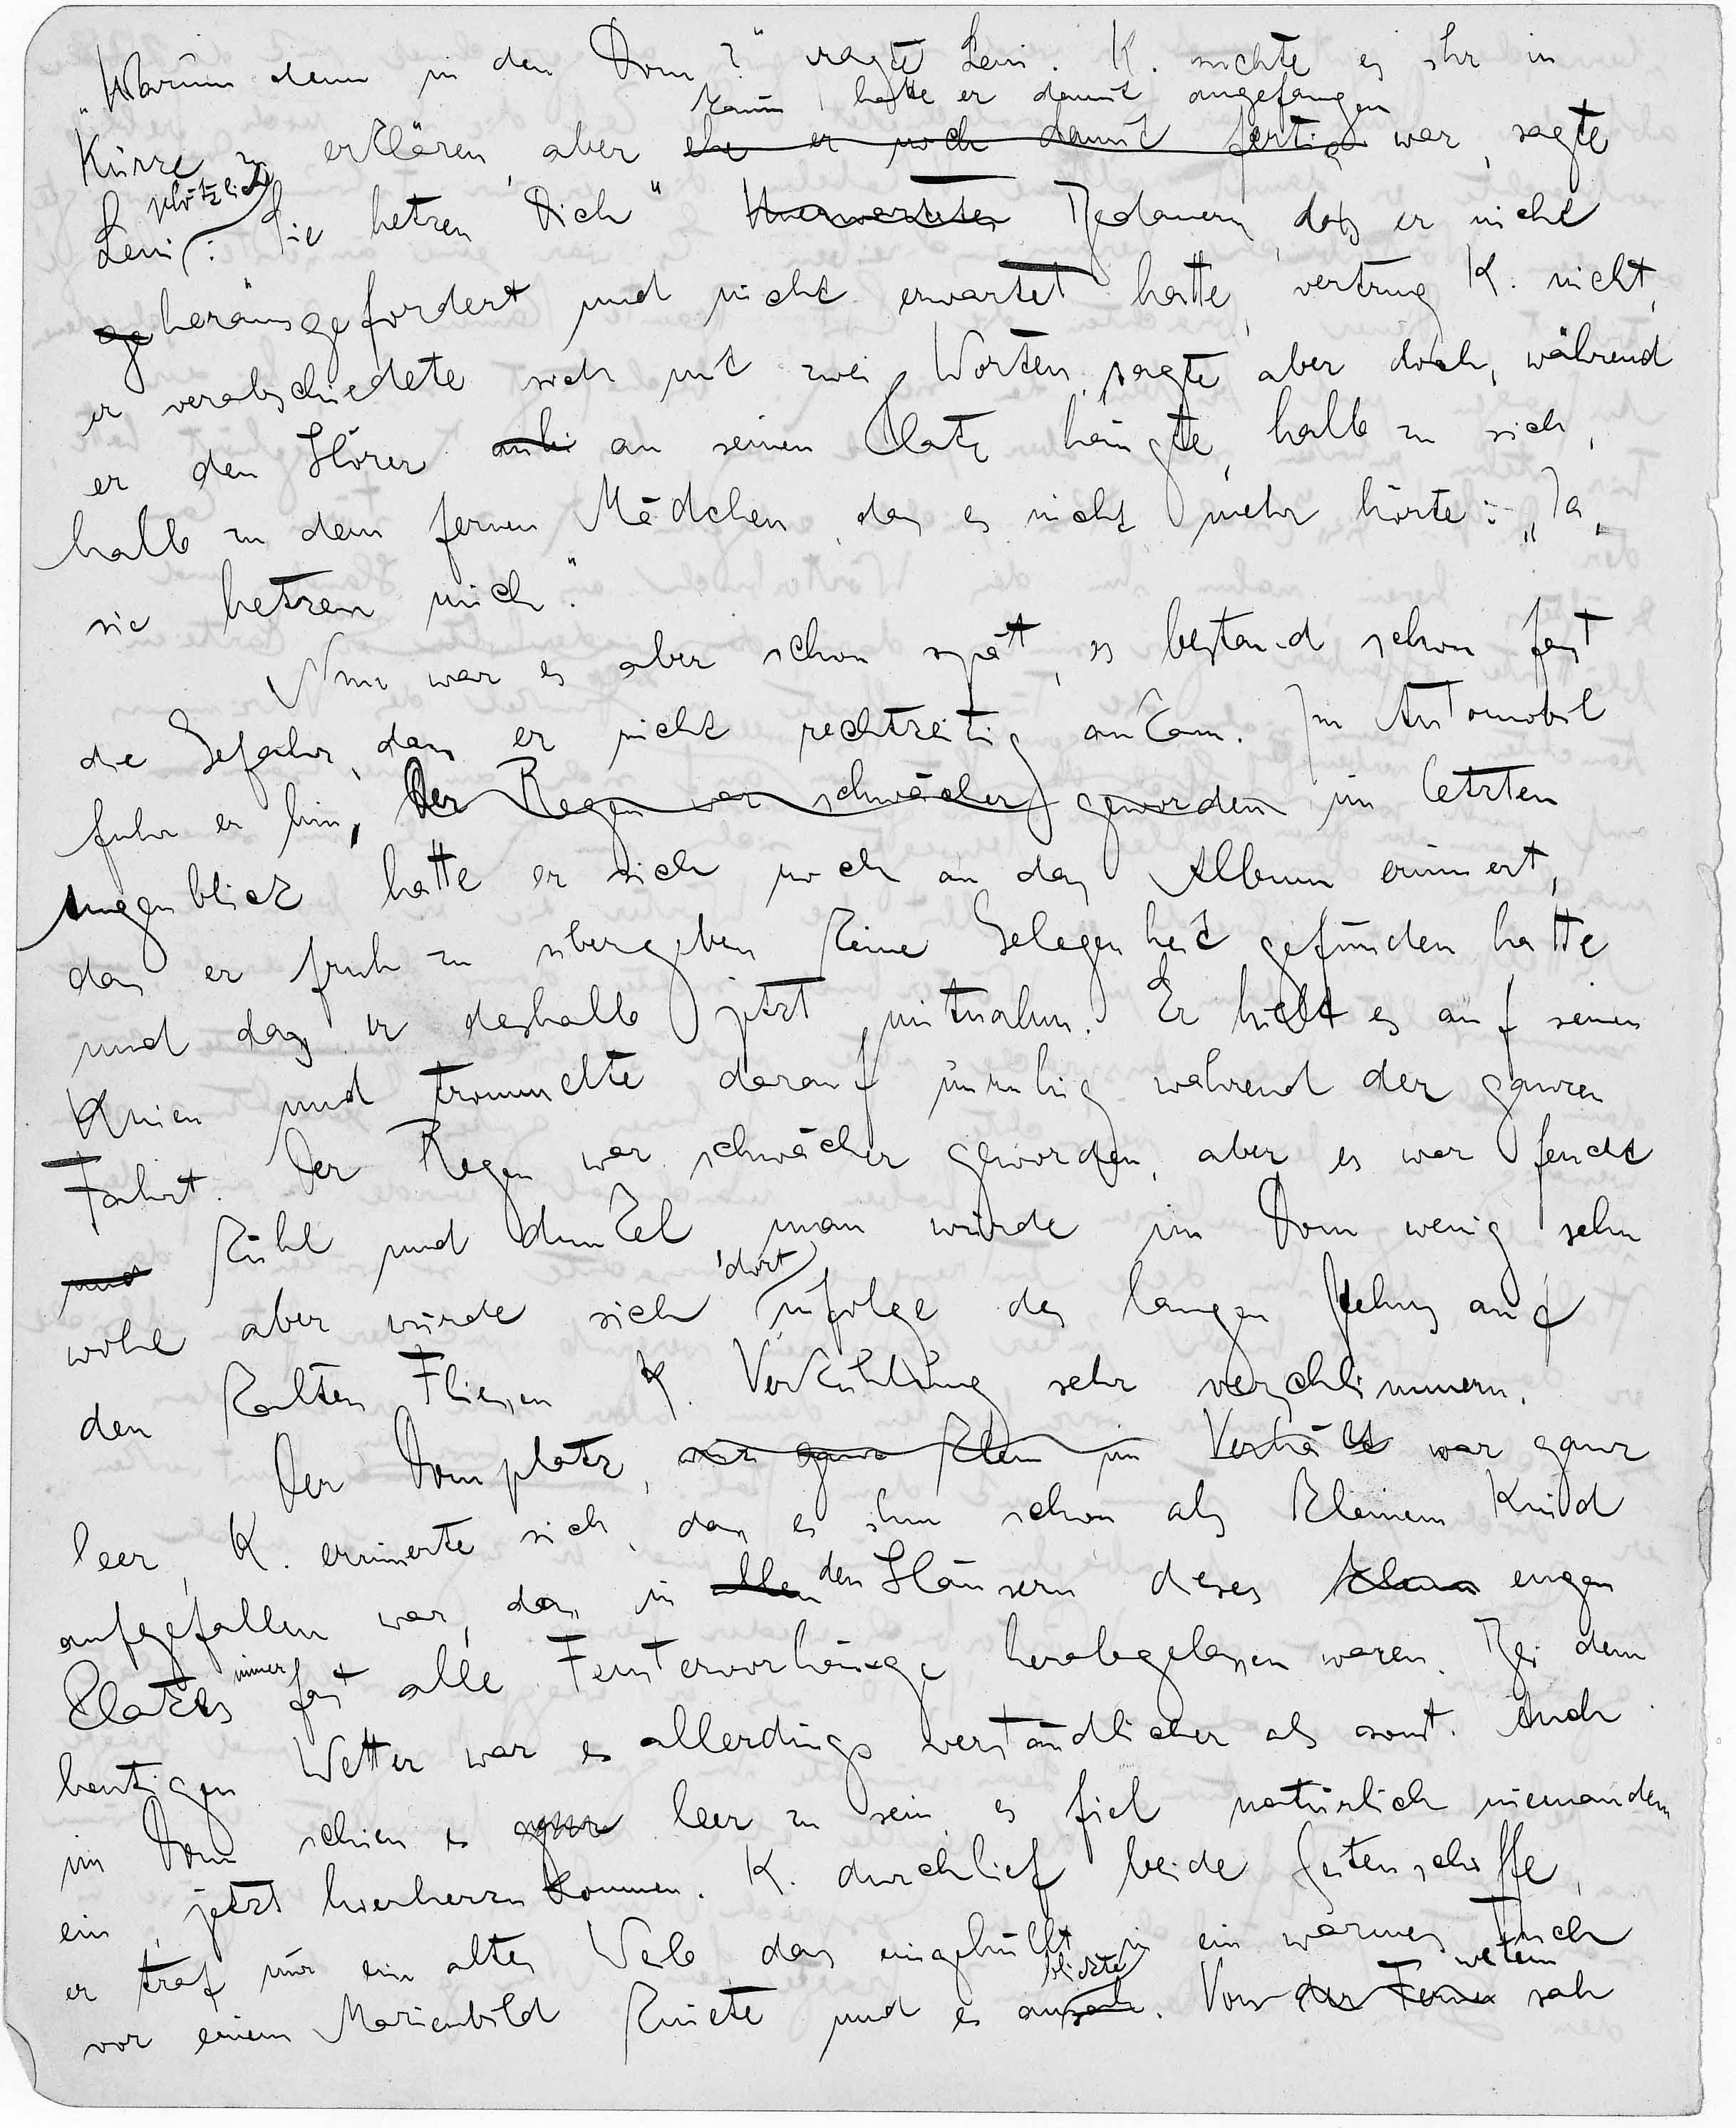 "Warum denn in den Dom?" ragte Leni. K. suchte es ihr in
kaum hatte er damit angefangen
Kürze zu erklären, aber ehe er noch damit fertig war, sagte
plötzlich
Leni: Sie hetzen Dich" Unerwartetes Bedauern, das er nicht
ge herausgefordert und nicht erwartet hatte, vertrug K. nicht,
er verabschiedete sich mit zwei Worten, sagte aber doch, während
er den Hörer an seinen Platz hängte, halb zu sich,
halb zu dem fernen Mädchen, das es nicht mehr hörte: „Ja,
sie hetzen mich."
Nun war es aber schon spät, es bestand schon fast
die Gefahr, dass er nicht rechtzeitig ankam. Im Automobil
fuhr er hin, Der Regen war schwächer geworden im letzten
Augenblick hatte er sich noch an das Album erinnert,
das er früh zu übergeben keine Gelegenheit gefunden hatte
und das er deshalb jetzt mitnahm. Er hielt es auf seinen
Knien und trommelte darauf unruhig während der ganzen
Fahrt. Der Regen war schwächer geworden, aber es war feucht
und kühl und dunkel, man würde im Dom wenig sehn
dort
wohl aber würde sich infolge des langen Stehns auf
den kalten Fliesen K. Verkühlung sehr verschlimmern.
Der Domplatz, war ganz klein im Verhält war ganz
leer, K. erinnerte sich, dass es ihm schon als kleinem Kind
aufgefallen war, dass in allen den Häusern dieses kleinen engen
Platzes immer fast alle Fenstervorhänge herabgelassen waren. Bei dem
heutigen Wetter war es allerdings verständlicher als sonst. Auch
im Dom schien es ganz leer zu sein, es fiel natürlich niemandem
ein, jetzt hierherzukommen. K. durchlief beide Seitenschiffe,
er traf nur ein altes Weib, das eingehüllt in ein warmes Tuch
blickte weitem
vor einem Marienbild kniete und es ansah. Von der Ferne sah